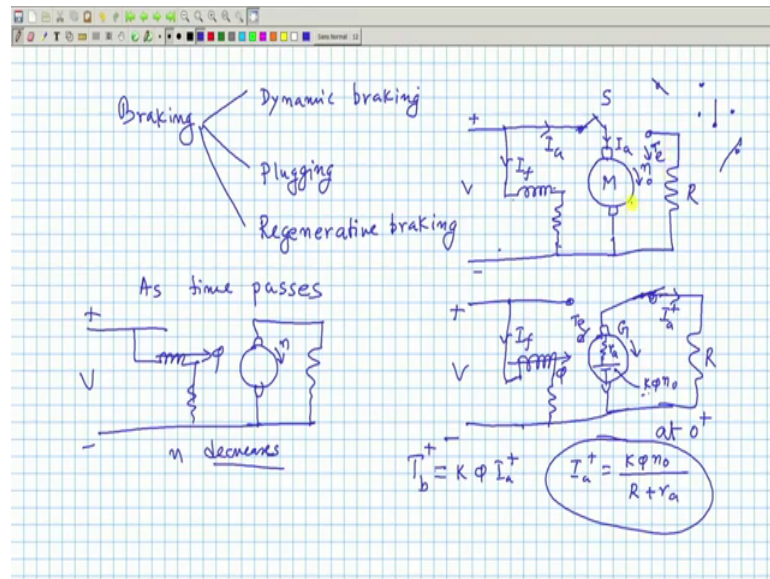 Sans Normal 12
Braking
Dynamic braking
Plugging
Regenerative braking
S
+
I_a
I_a
T_e
I_f
V
M
n_0
R
-
As time passes
+
φ
n
V
-
n decreases
+
I_f
T_e
G
I_a^+
φ
r_a
V
R
Kφn_0
-
at 0^+
T_b^+ = K φ I_a^+
I_a^+ = Kφn_0 / R + r_a